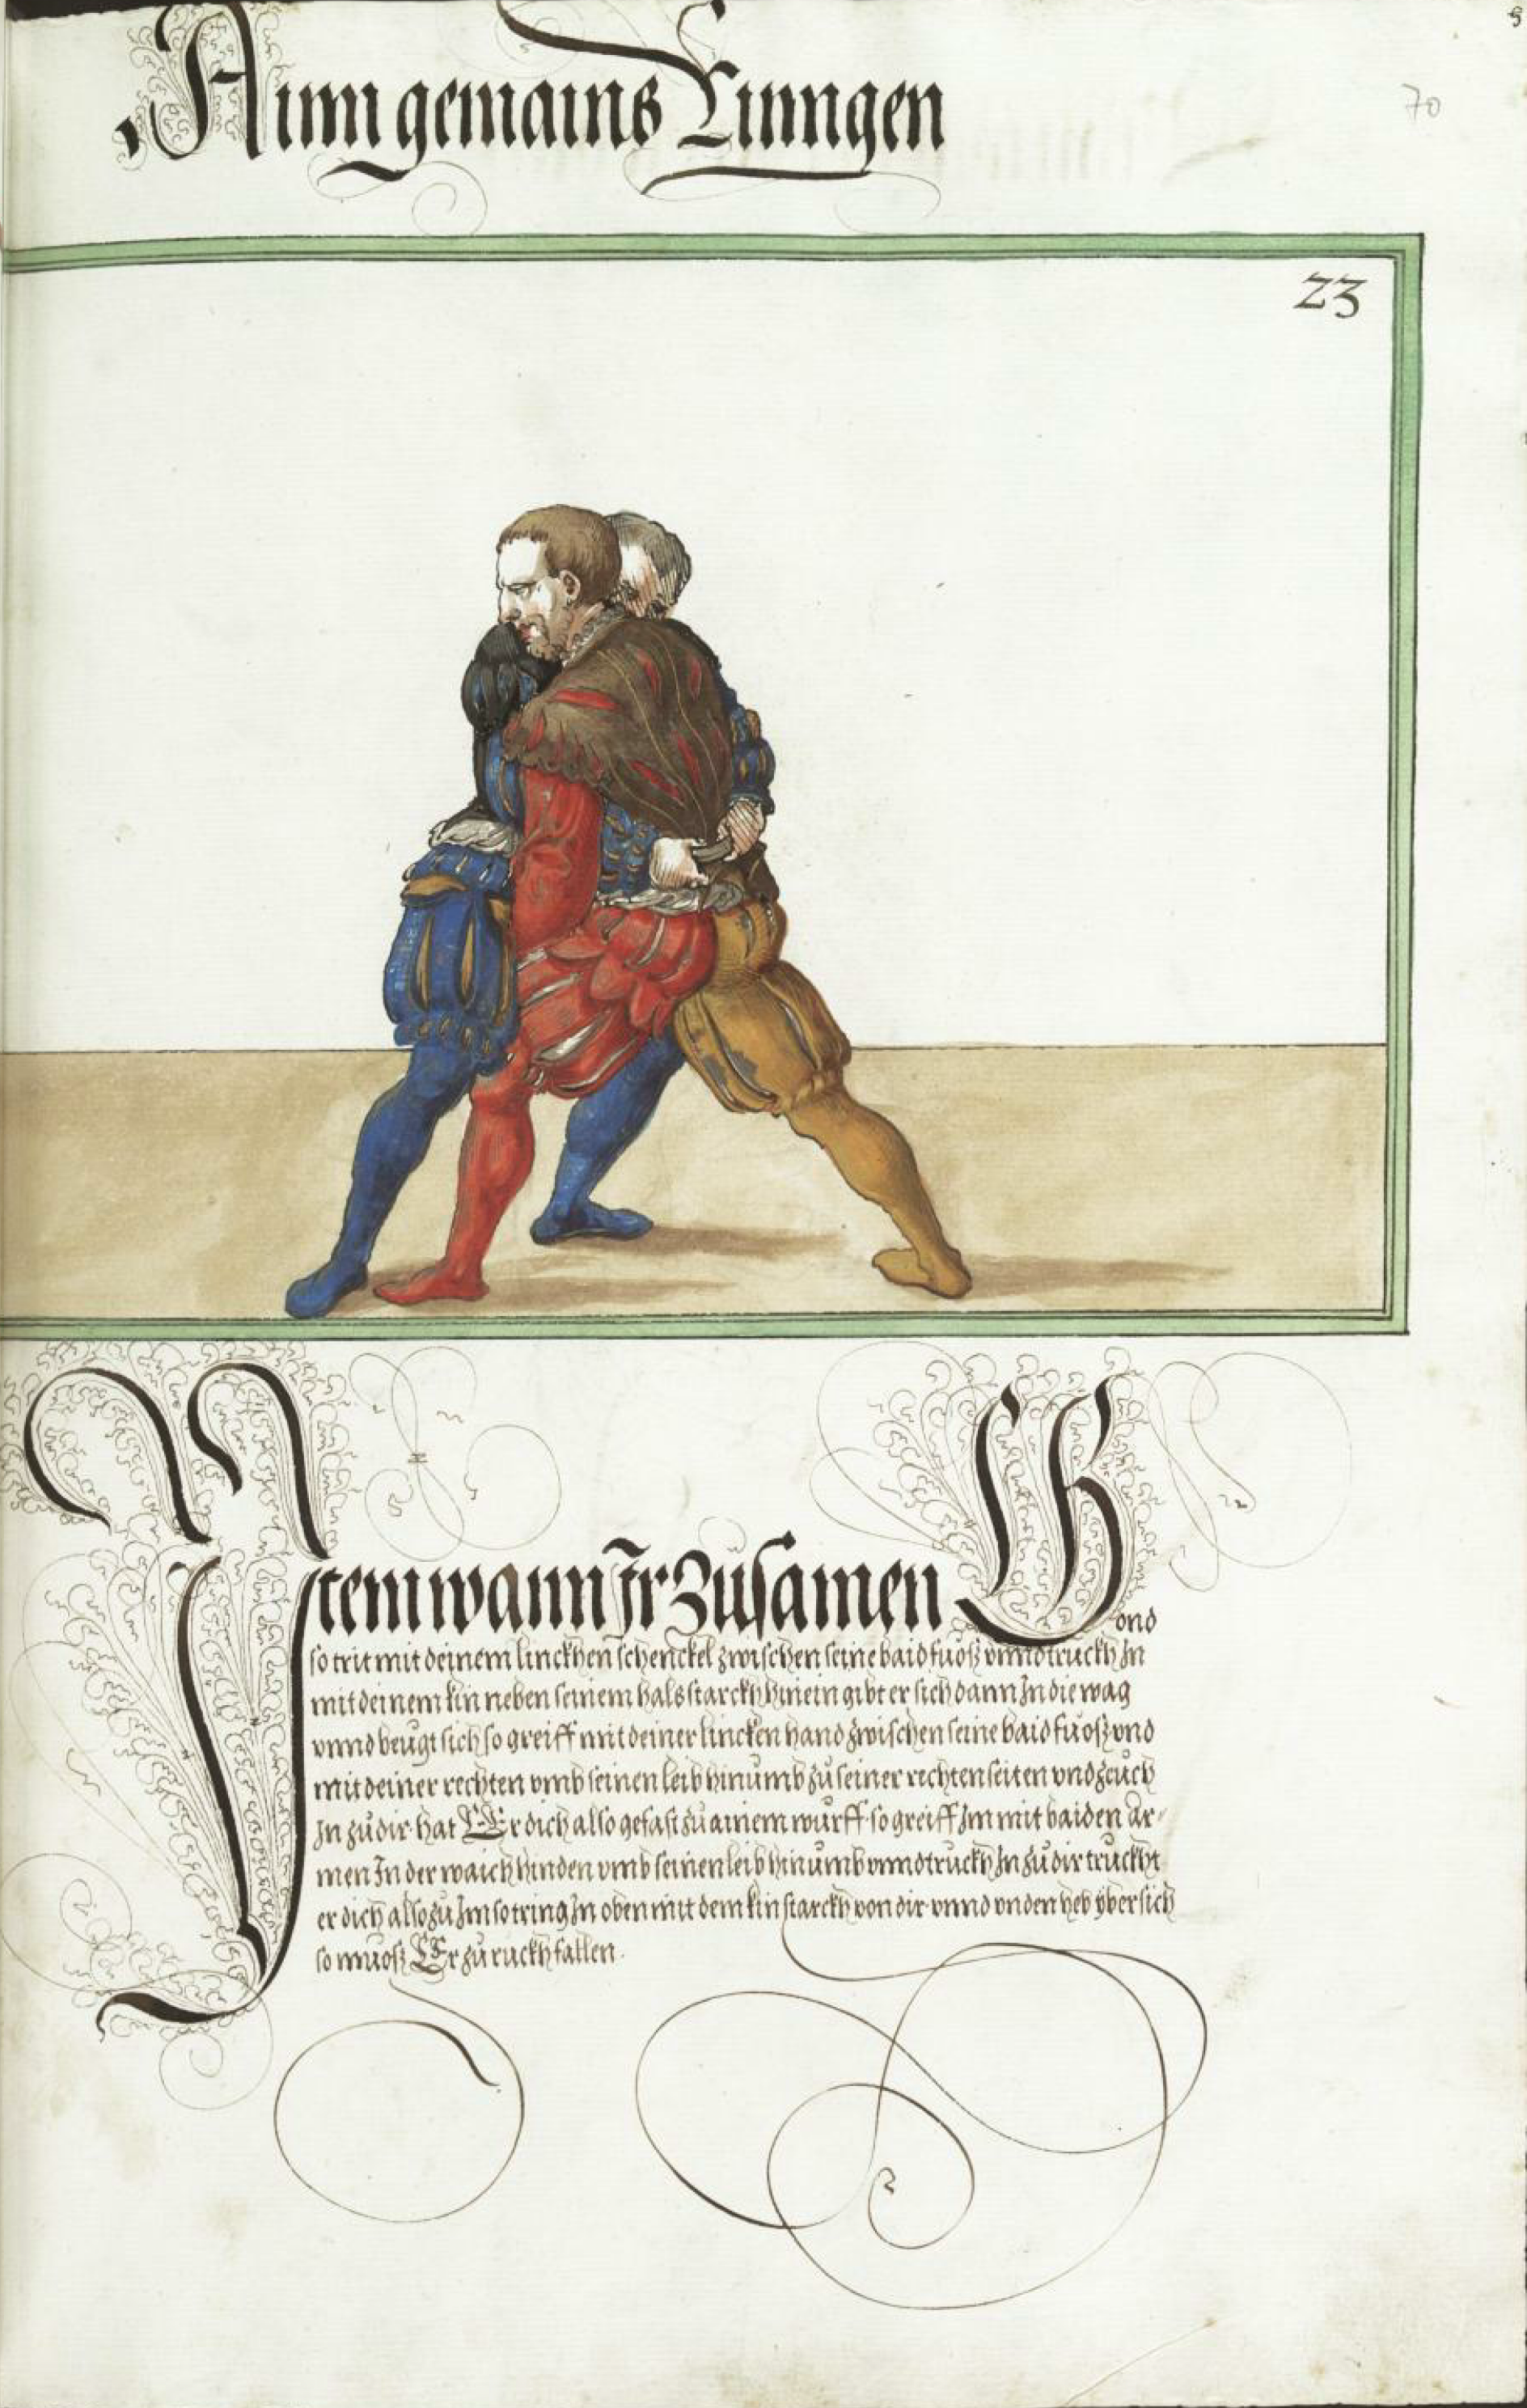 Ainn gemains Ringen
70
23
Item wann Ir Zusamen Gond
so trit mit deinem linckhen schenckel zwischen seine baid fuosz vnnd truckh In
mit deinem kin neben seinem hals starckh hinein gibt er sich dann In die wag
vnnd beugt sich so greiff mit deiner lincken hand zwischen seine baid fuosz vnd
mit deiner rechten vmb seinen leib hinumb zu seiner rechten seiten vnd zeuch
In zu dir. hat Er dich also gefast zu ainem wurff. so greiff Im mit baiden ar-
men In der waich hinden vmb seinen leib hinumb vnnd truckh In zu dir truckht
er dich also zu Im so tring In oben mit dem kin starckh von dir vnnd vnden heb ybersich
so muosz Er zuruckh fallen.